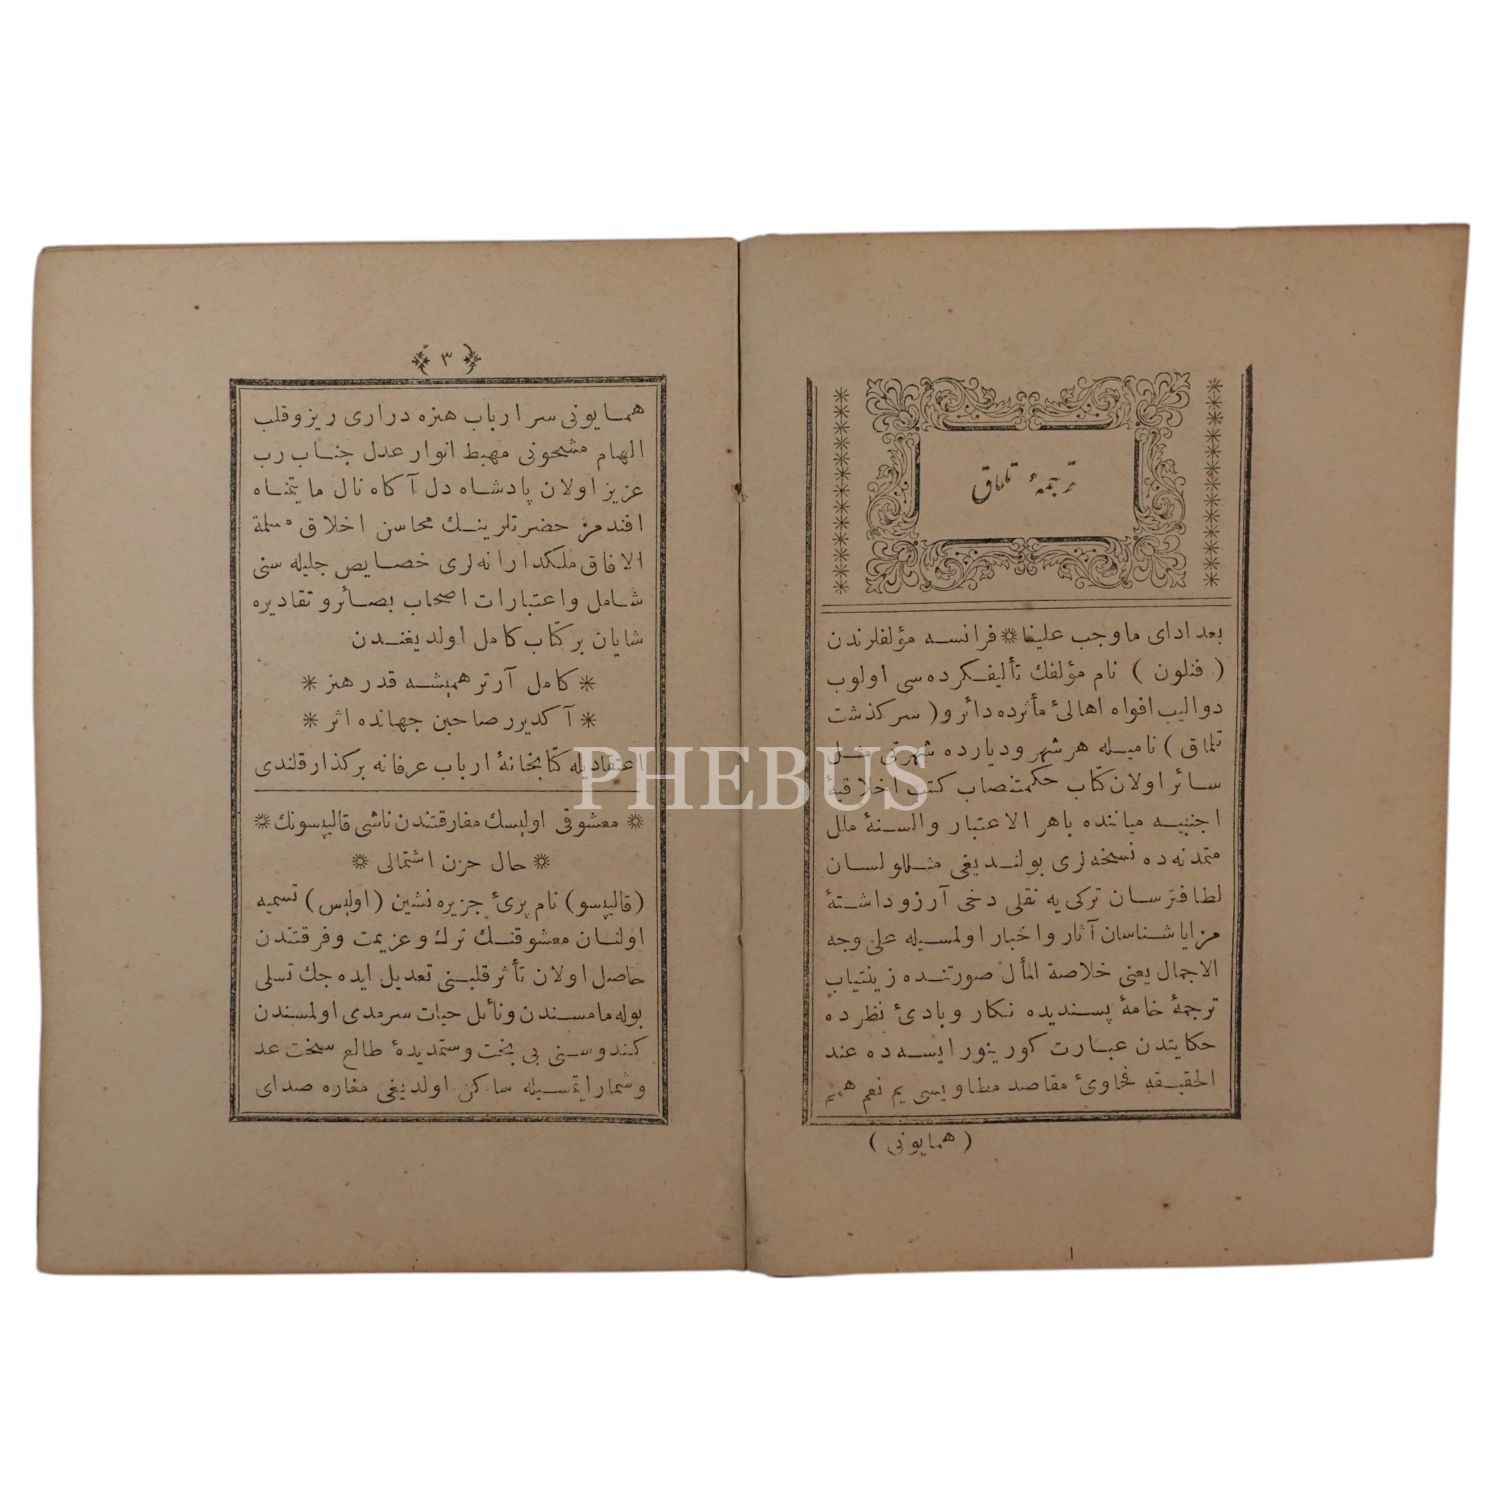 ترجمهٔ تلماق
بعد ادای ماوجب علینا ❊ فرانسه مؤلفلرندن
( فنلون ) نام مؤلفك تألیفکرده سی اولوب
دوالیب افواه اهالیٔ مأثرده دائر و( سرکذشت
تلماق ) نامیله هر شهر ودیارده شهرتی مثل
سائر اولان کتاب حکمتنصاب کتب اخلاقیهٔ
اجنبیه میاننده باهر الاعتبار والسنهٔ ملل
متمدنه ده نسخه لری بولندیغی مثللو لسان
لطافترسان ترکی یه نقلی دخی آرزو داشتهٔ
مزایا شناسان آثار واخبار اولمسیله علی وجه
الاجمال یعنی خلاصة المأل صورتنده زینتیاب
ترجمهٔ خامهٔ پسندیده نکار وبادیٔ نظرده
حکایتدن عبارت کورینور ایسه ده عند
الحقیقه فحاویٔ مقاصد مطاویسی یم نعم همم
( همایونی )
١
٣
همایونی سر ارباب هنزه دراری ریز وقلب
الهام مشحونی مهبط انوار عدل جناب رب
عزیز اولان پادشاه دل آکاه نال مایتمناه
افندمز حضرتلرینك محاسن اخلاق مسلمة
الافاق ملکدارانه لری خصایص جلیله سنی
شامل واعتبارات اصحاب بصائر و تقادیره
شایان بر کتاب کامل اولدیغندن
✳ کامل آرتر همیشه قدر هنر ✳
✳ آکدیرر صاحبن جهانده اثر ✳
اعتقادیله کتابخانهٔ ارباب عرفانه برکذار قلندی
❊ معشوقی اولیسك مفارقتندن ناشی قالیپسونك ❊
❊ حال حزن اشتمالی ❊
(قالیپسو) نام پریٔ جزیره نشین (اولیس) تسمیه
اولنان معشوقنك ترك وعزیمت وفرقتندن
حاصل اولان تأثر قلبنی تعدیل ایده جك تسلی
بوله مامسندن ونائل حیات سرمدی اولمسندن
کندوسنی بی بخت وستمدیدهٔ طالع سخت عد
وشمار ایتمسیله ساکن اولدیغی مغاره صدای
PHEBUS